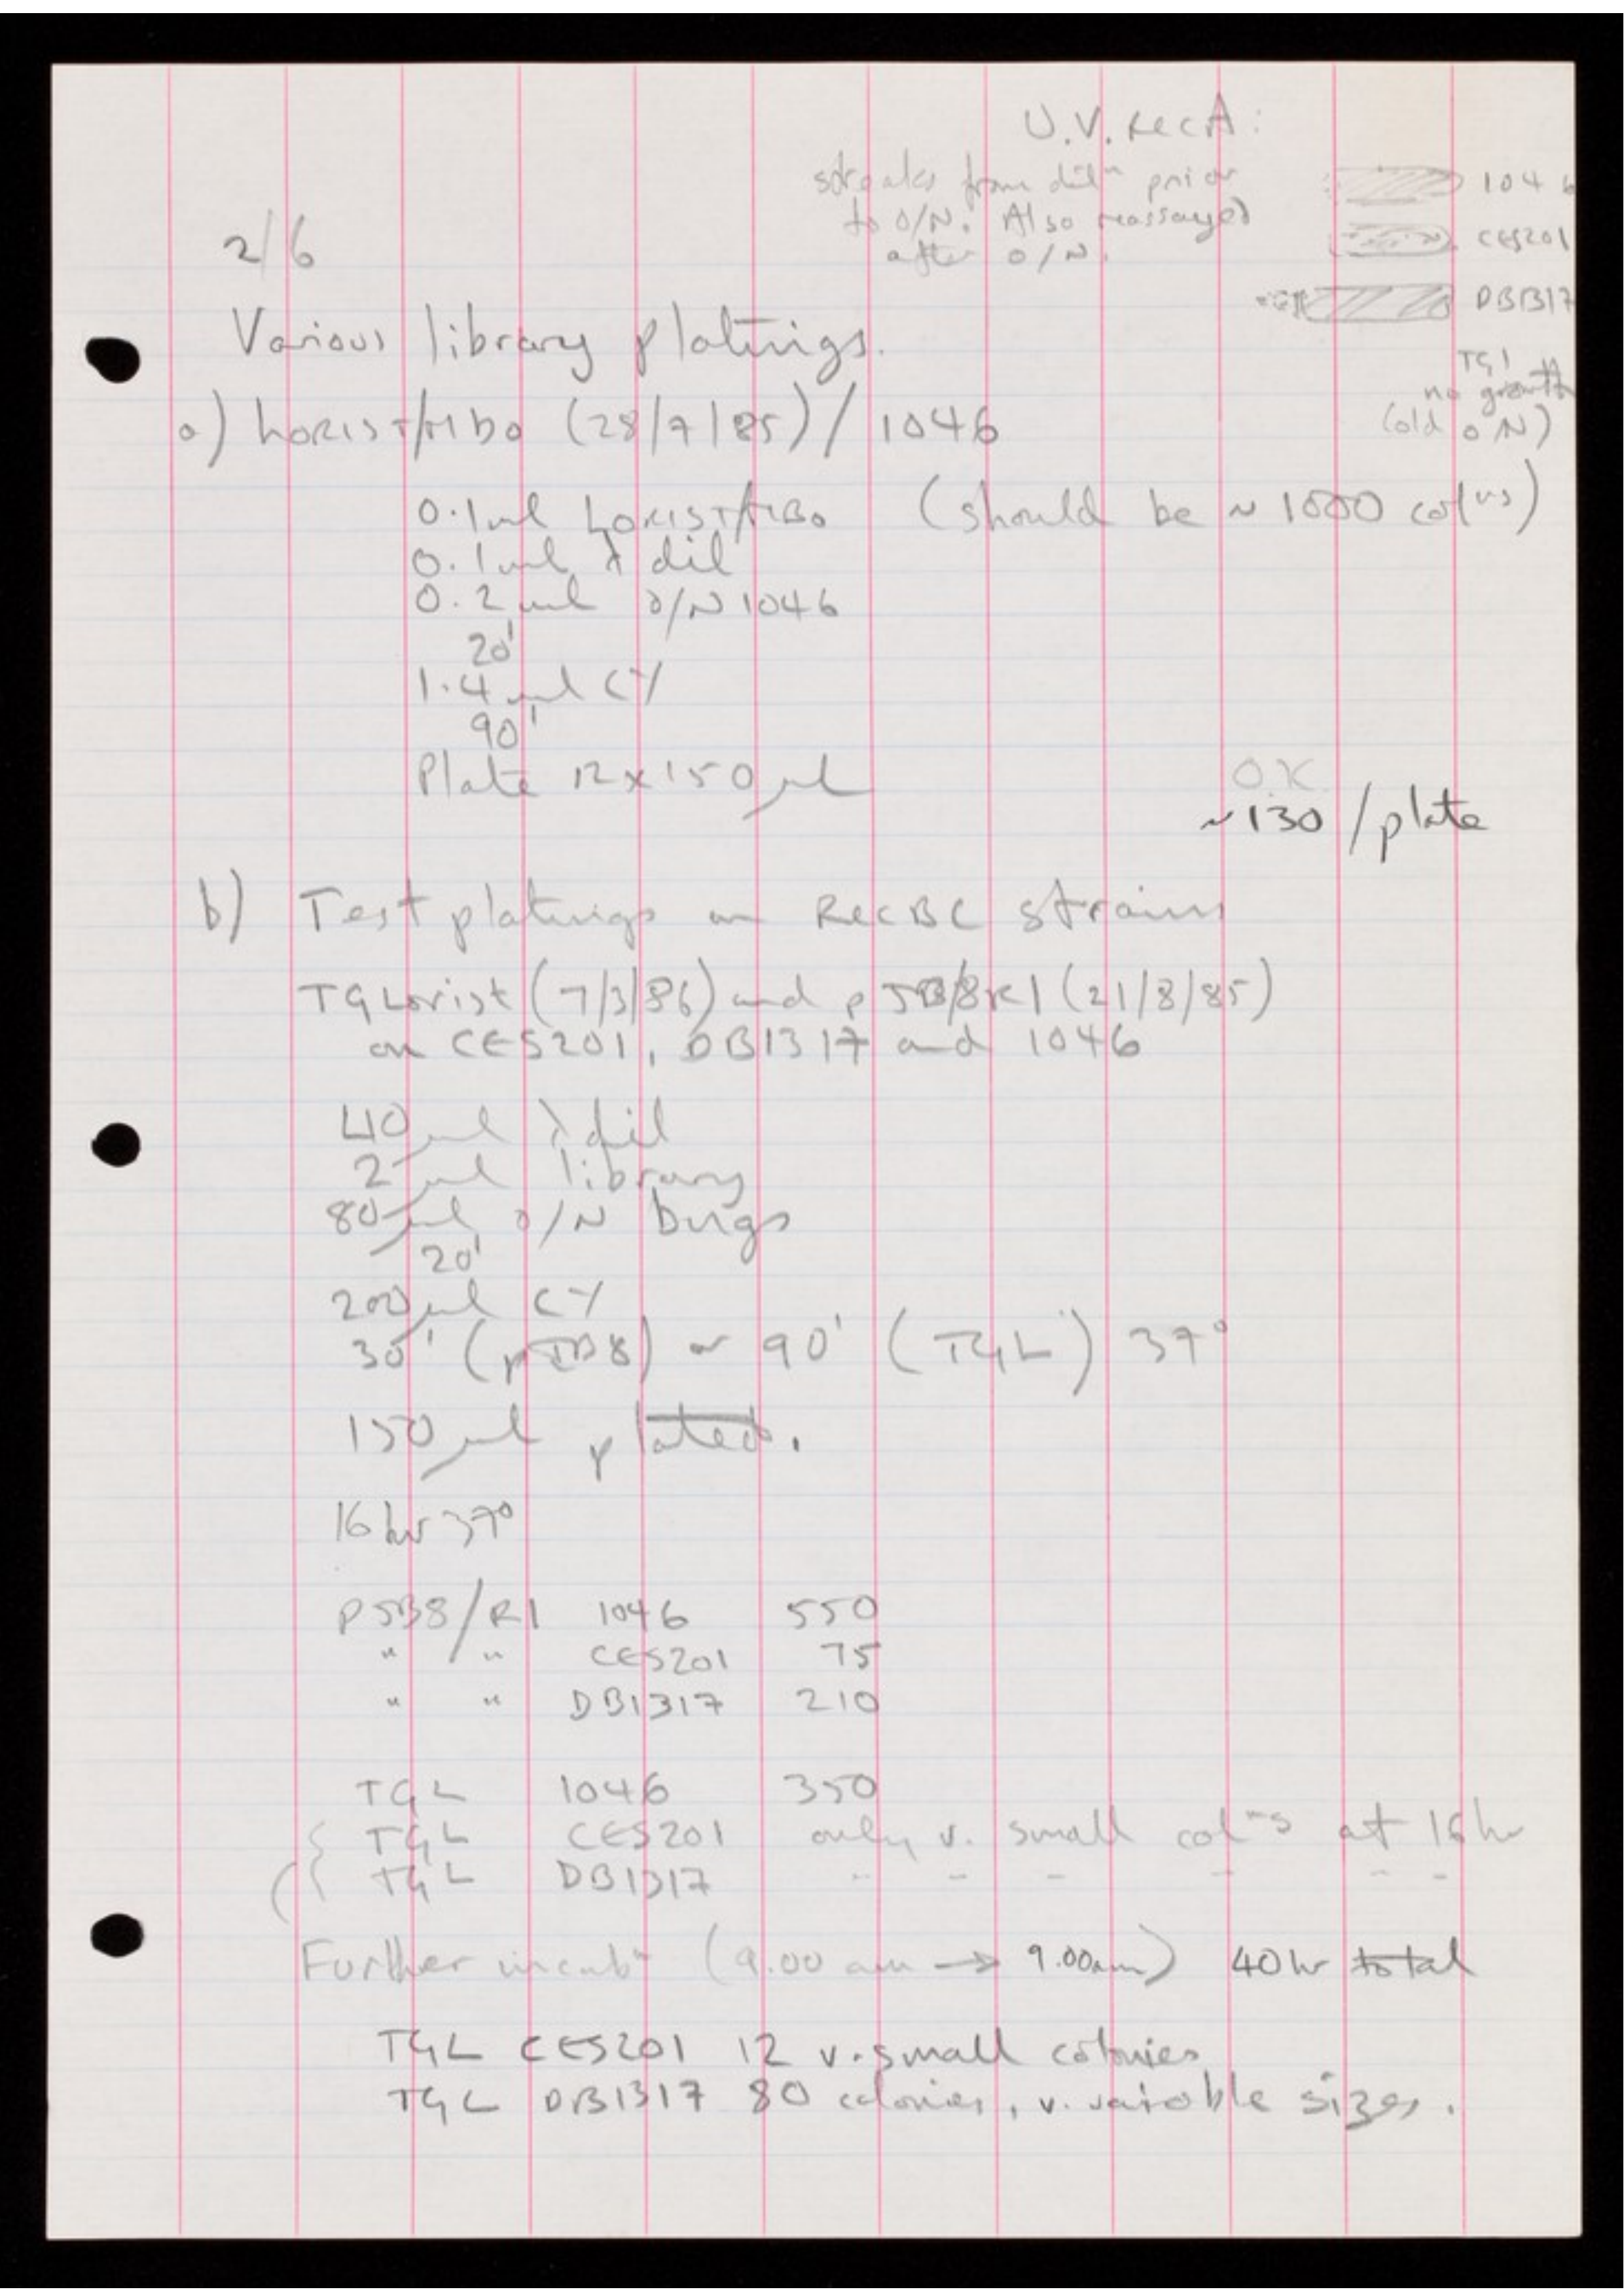 U.V. RecA:
streaks from dilⁿ prior
to O/N. Also reassayed
after O/N.
1046
CES201
DB1317
TG1
no growth
(old O/N)
2/6
Various library platings.
a) LORIST/MBO (28/7/85) / 1046
0.1ml LORIST/MBO (should be ~ 1000 colⁿs)
0.1ml λ dil
0.2ml O/N 1046
20'
1.4ml CY
90'
Plate 12x150μl
O.K.
~130/plate
b) Test platings on RecBC strains
TGLorist (7/3/86) and pJB8/R1 (21/8/85)
on CES201, DB1317 and 1046
40μl λ dil
2μl library
80μl O/N bugs
20'
200μl CY
30' (pJB8) or 90' (TGL) 37°
150μl plated.
16hr 37°
pJB8/R1 1046 550
" " CES201 75
" " DB1317 210
TGL 1046 350
TGL CES201 only v. small colⁿs at 16hr
TGL DB1317 " " " " " "
Further incubⁿ (9.00am → 9.00am) 40hr total
TGL CES201 12 v. small colonies
TGL DB1317 80 colonies, v. variable sizes.